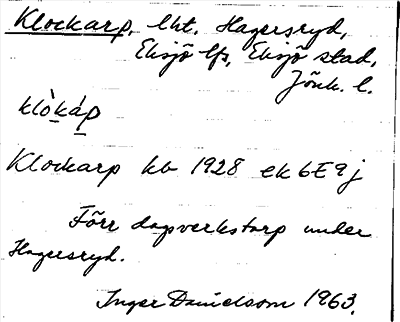 Klockarp, lht. Hagersryd,
Eksjö lfs, Eksjö stad,
Jönk. l.
klò̱ká̱p
Klockarp kb 1928 ek 6E9j
Förr dagsverkstorp under
Hagersryd.
Inger Danielsson 1963.